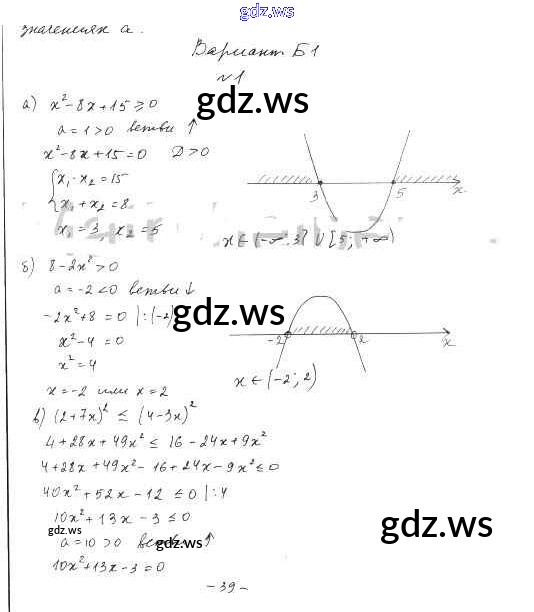 gdz.ws
значениях a.
Вариант Б1
№1
а) x²-8x+15≥0
a=1>0 ветви ↑
x²-8x+15=0 D>0
{x₁·x₂=15
{x₁+x₂=8
x₁=3, x₂=5
3 5 x
x∈(-∞;3]∪[5;+∞)
gdz.ws
б) 8-2x²>0
a=-2<0 ветви ↓
-2x²+8=0 |:(-2)
x²-4=0
x²=4
x=-2 или x=2
-2 2 x
x∈(-2;2)
gdz.ws
в) (2+7x)²≤(4-3x)²
4+28x+49x²≤16-24x+9x²
4+28x+49x²-16+24x-9x²≤0
40x²+52x-12≤0 |:4
10x²+13x-3≤0
gdz.ws
gdz.ws
a=10>0 ветви ↑
gdz.ws
10x²+13x-3=0
-39-